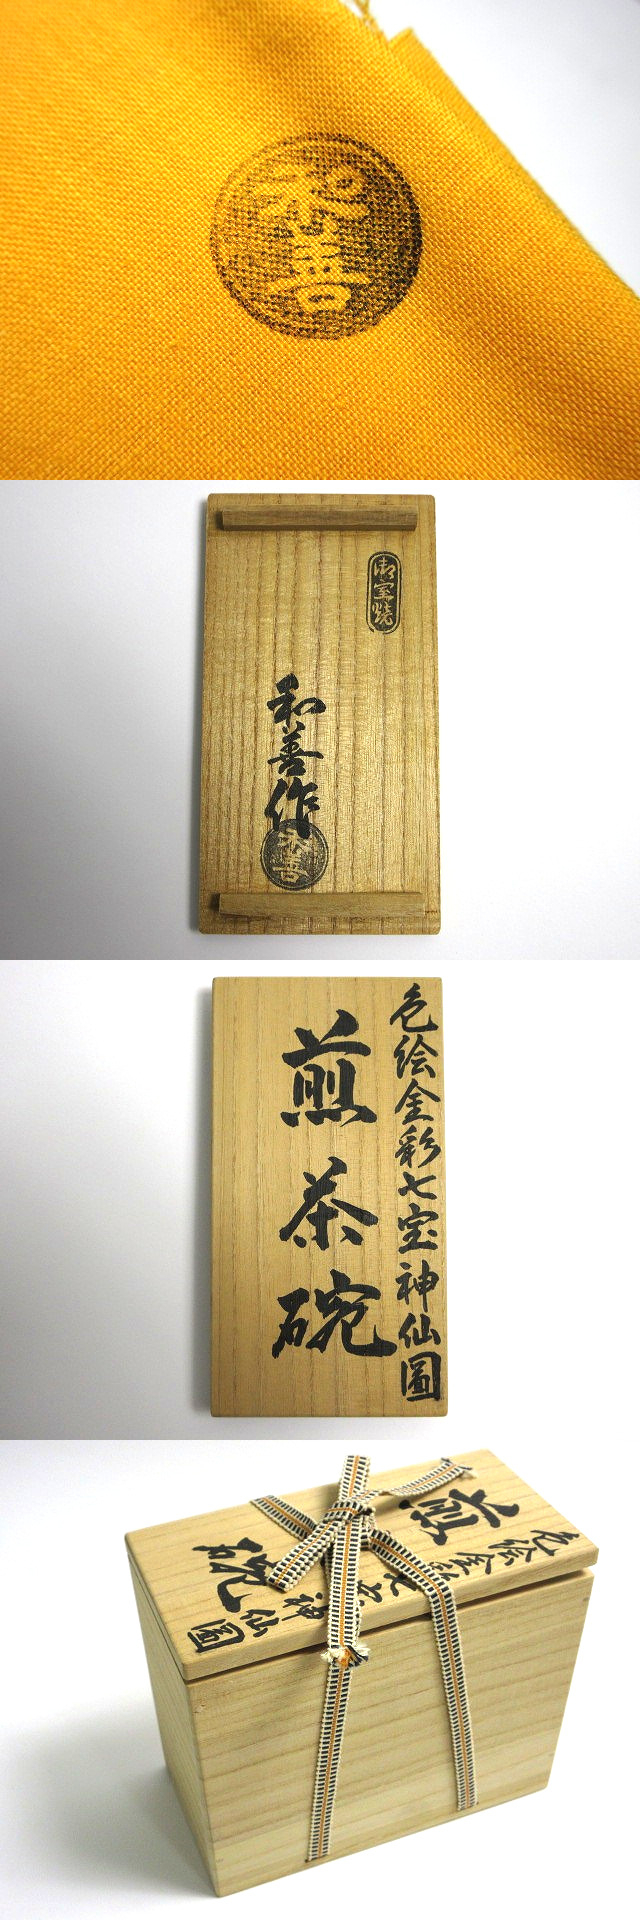 和善
御室焼
和善作
和善
色絵金彩七宝神仙圖
煎茶碗
色絵金彩七宝神仙圖
煎茶碗